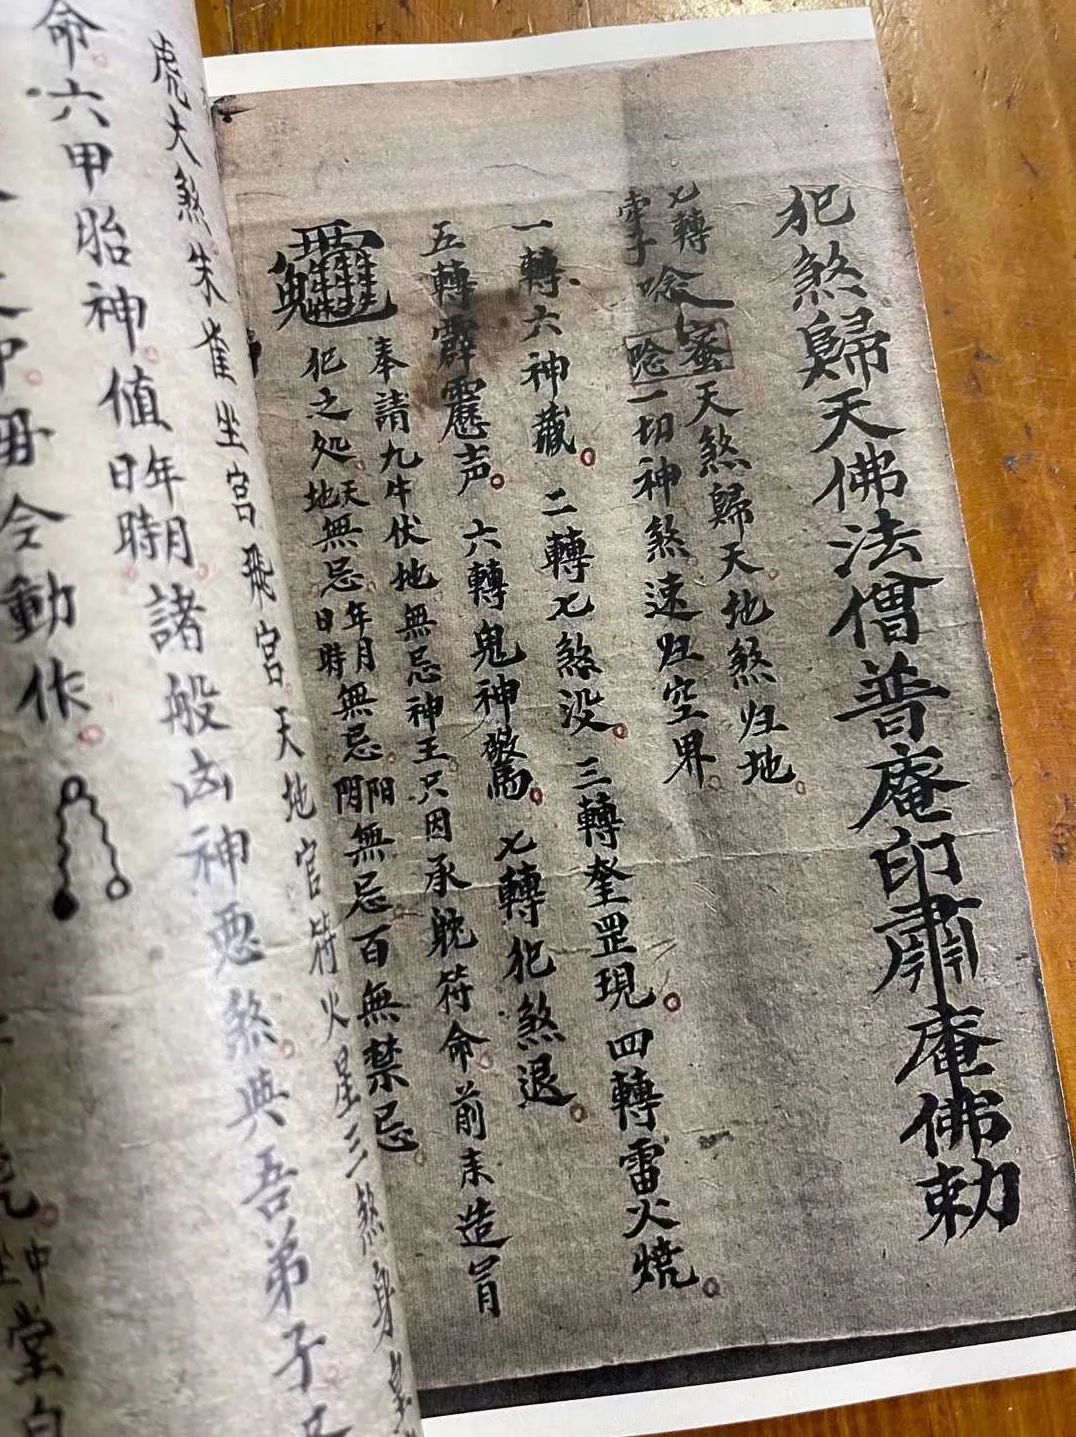 犯煞歸天佛法僧普庵印肅庵佛勅
七轉
字念 蚕天煞歸天。地煞归地。
唸一切神煞速归空界。
一轉六神藏。二轉七煞没。三轉奎罡現。四轉雷火燒。
五轉霹靂声。六轉鬼神驚。七轉犯煞退。
奉請九牛伏地無忌神王。只因承貺符命。前来造胥
犯之処。天地無忌年月日時無忌。阴阳無忌百無禁忌。
虎大煞。朱雀坐宮飛宮。天地官符火星三煞身皇
命。六甲胎神。值年月日時。諸般凶神惡煞。與吾弟子
毋令動作。
中堂